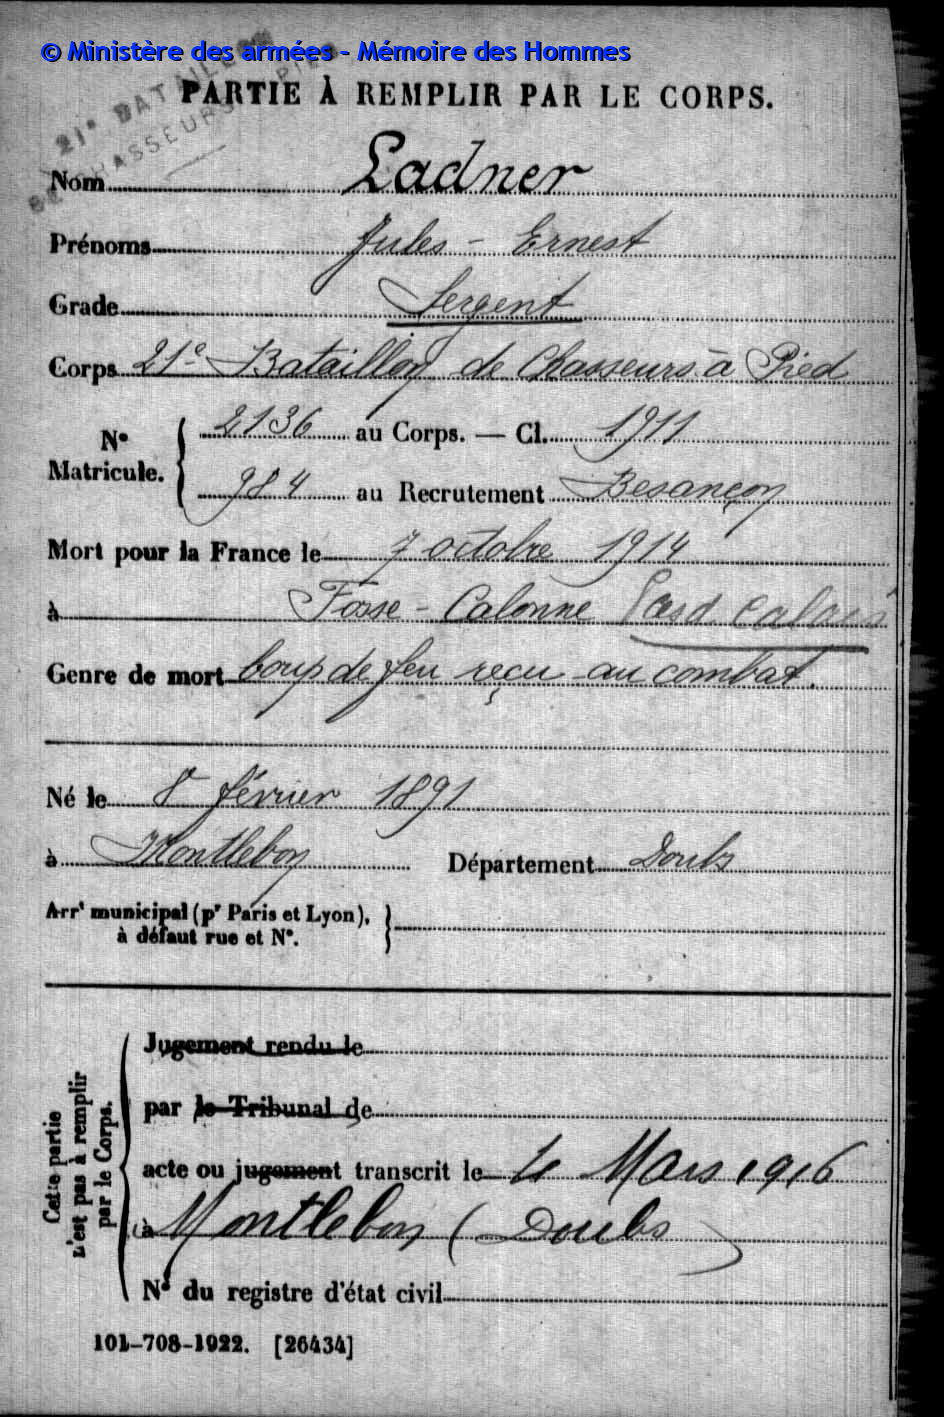 © Ministère des armées - Mémoire des Hommes
21e BATAILLON
DE CHASSEURS À PIED
PARTIE À REMPLIR PAR LE CORPS.
Nom Ladner
Prénoms Jules - Ernest
Grade Sergent
Corps 21e Bataillon de Chasseurs à Pied
No Matricule. 2136 au Corps. — Cl. 1911
984 au Recrutement Besançon
Mort pour la France le 7 octobre 1914
à Fosse - Calonne Pas d Calais
Genre de mort Coup de feu reçu au combat.
Né le 8 février 1891
à Montlebon Département Doubs
Arrt municipal (pr Paris et Lyon),
à défaut rue et No.
Cette partie
n'est pas à remplir
par le Corps.
Jugement rendu le
par le Tribunal de
acte ou jugement transcrit le 4 Mars 1916
à Montlebon (Doubs)
No du registre d'état civil
101-708-1922. [26434]